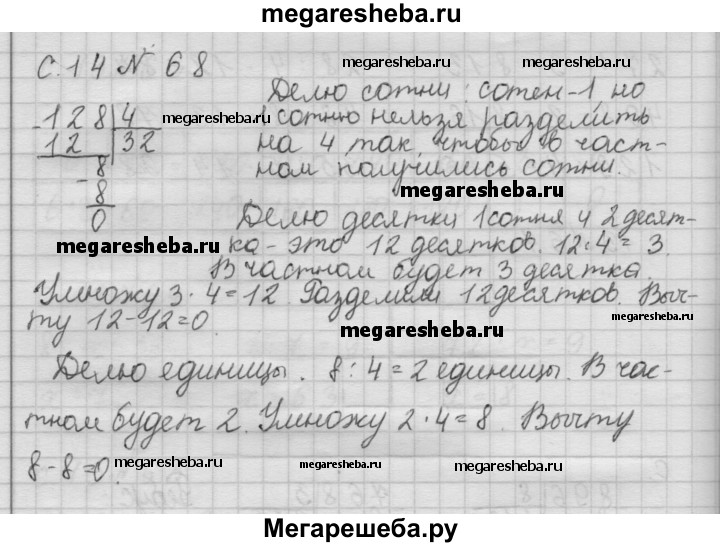 megaresheba.ru
С. 14 № 68
megaresheba.ru megaresheba.ru
Делю сотни : сотен - 1, но
128 | 4 megaresheba.ru 1 сотню нельзя разделить
12 | 32 на 4 так, чтобы в част-
8 ном получились сотни.
- 8 megaresheba.ru
0 Делю десятки 1 сотня и 2 десят-
megaresheba.ru ка - это 12 десятков. 12:4=3.
В частном будет 3 десятка.
Умножу 3·4=12. Разделили 12 десятков. Вычи-
ту 12-12=0. megaresheba.ru megaresheba.ru
Делю единицы. 8:4=2 единицы. В час-
тном будет 2. Умножу 2·4=8. Вычту
8-8=0. megaresheba.ru megaresheba.ru megaresheba.ru
Мегарешеба.ру